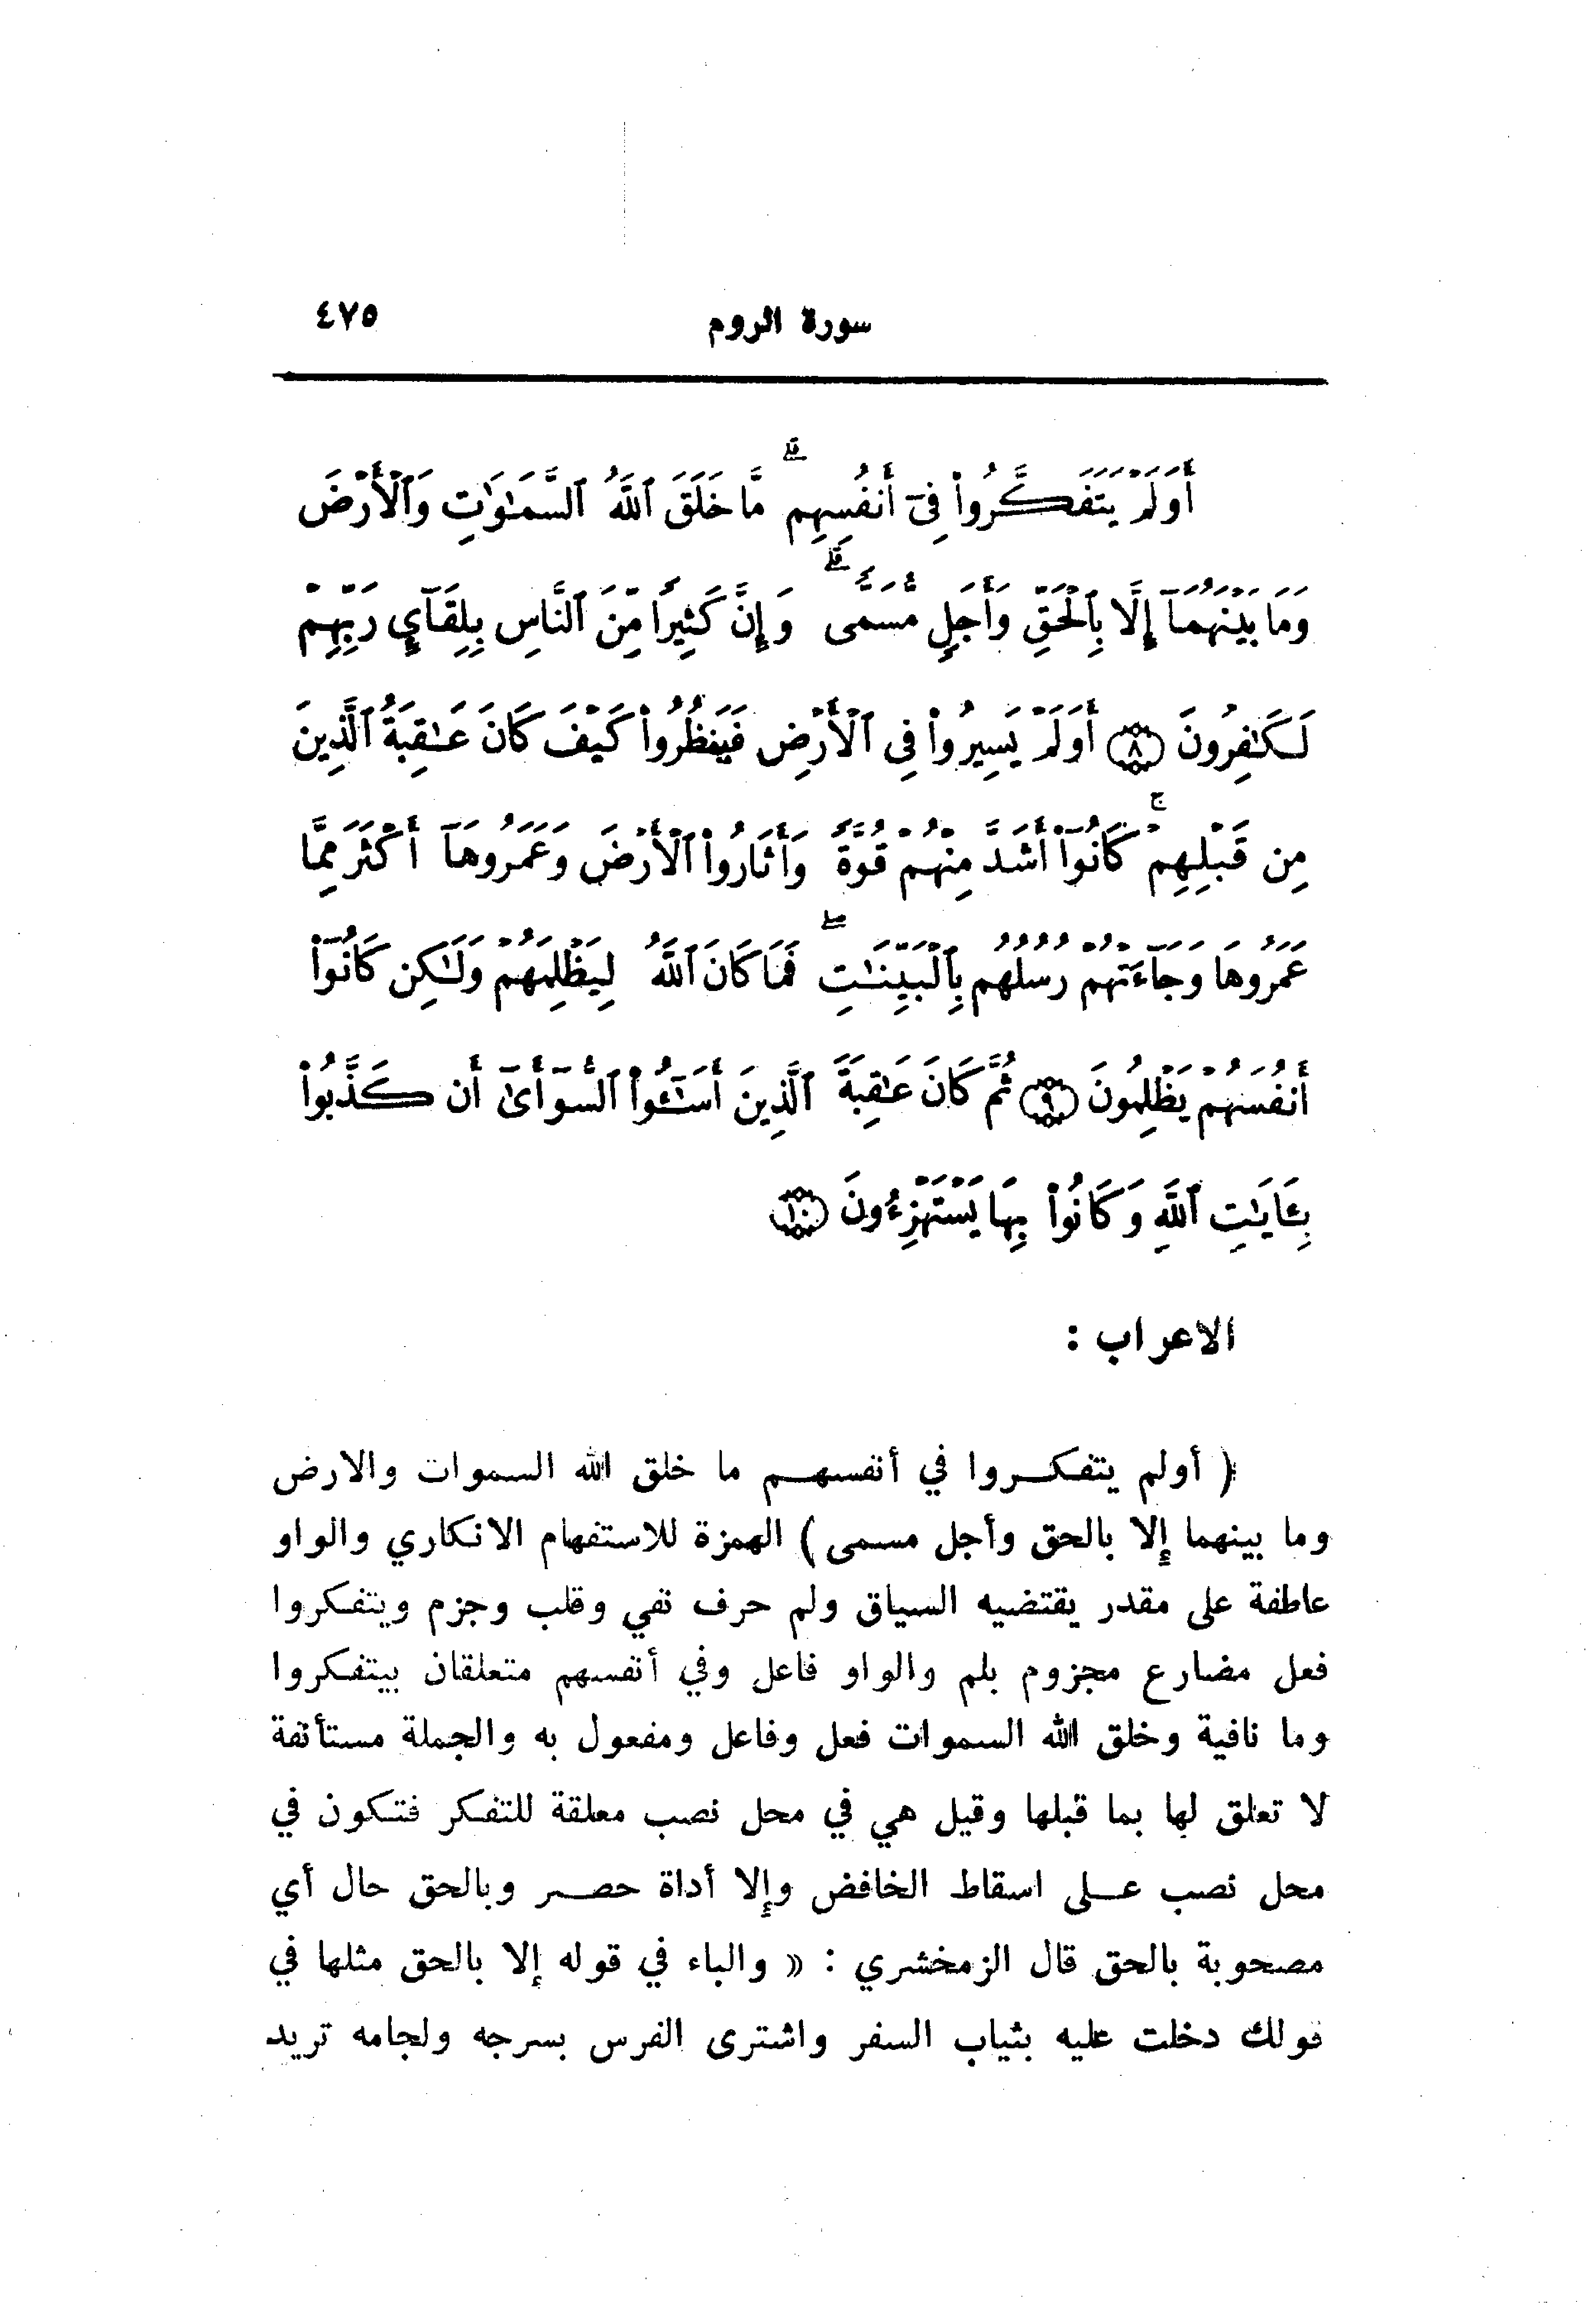 سورة الروم ٤٧٥
أَوَلَمْ يَتَفَكَّرُوا۟ فِىٓ أَنفُسِهِم ۗ مَّا خَلَقَ ٱللَّهُ ٱلسَّمَـٰوَٰتِ وَٱلْأَرْضَ
وَمَا بَيْنَهُمَآ إِلَّا بِٱلْحَقِّ وَأَجَلٍ مُّسَمًّى ۗ وَإِنَّ كَثِيرًا مِّنَ ٱلنَّاسِ بِلِقَآئِ رَبِّهِمْ
لَكَـٰفِرُونَ ﴿٨﴾ أَوَلَمْ يَسِيرُوا۟ فِى ٱلْأَرْضِ فَيَنظُرُوا۟ كَيْفَ كَانَ عَـٰقِبَةُ ٱلَّذِينَ
مِن قَبْلِهِمْ ۚ كَانُوٓا۟ أَشَدَّ مِنْهُمْ قُوَّةً وَأَثَارُوا۟ ٱلْأَرْضَ وَعَمَرُوهَآ أَكْثَرَ مِمَّا
عَمَرُوهَا وَجَآءَتْهُمْ رُسُلُهُم بِٱلْبَيِّنَـٰتِ ۖ فَمَا كَانَ ٱللَّهُ لِيَظْلِمَهُمْ وَلَـٰكِن كَانُوٓا۟
أَنفُسَهُمْ يَظْلِمُونَ ﴿٩﴾ ثُمَّ كَانَ عَـٰقِبَةَ ٱلَّذِينَ أَسَـٰٓـُٔوا۟ ٱلسُّوٓأَىٰٓ أَن كَذَّبُوا۟
بِـَٔايَـٰتِ ٱللَّهِ وَكَانُوا۟ بِهَا يَسْتَهْزِءُونَ ﴿١٠﴾
الاعراب :
( أولم يتفكروا في أنفسهم ما خلق الله السموات والارض
وما بينهما إلا بالحق وأجل مسمى ) الهمزة للاستفهام الانكاري والواو
عاطفة على مقدر يقتضيه السياق ولم حرف نفي وقلب وجزم ويتفكروا
فعل مضارع مجزوم بلم والواو فاعل وفي أنفسهم متعلقان بيتفكروا
وما نافية وخلق الله السموات فعل وفاعل ومفعول به والجملة مستأنفة
لا تعلق لها بما قبلها وقيل هي في محل نصب معلقة للتفكر فتكون في
محل نصب على اسقاط الخافض وإلا أداة حصر وبالحق حال أي
مصحوبة بالحق قال الزمخشري : « والباء في قوله إلا بالحق مثلها في
قولك دخلت عليه بثياب السفر واشترى الفرس بسرجه ولجامه تريد